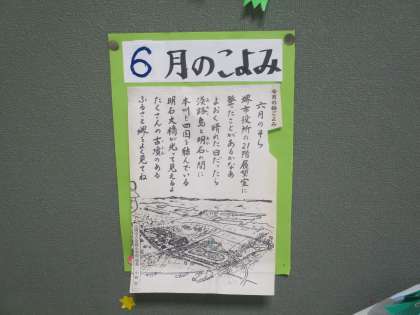 6月のこよみ
今月の詩ごよみ
六月のそら
堺市役所の21階展望室に
登ったことがあるかなあ
よおく晴れた日だったら
淡路島と明石の間に
本州と四国を結んでいる
明石大橋が光って見えるよ
たくさんの古墳のある
ふるさと堺をよく見てね